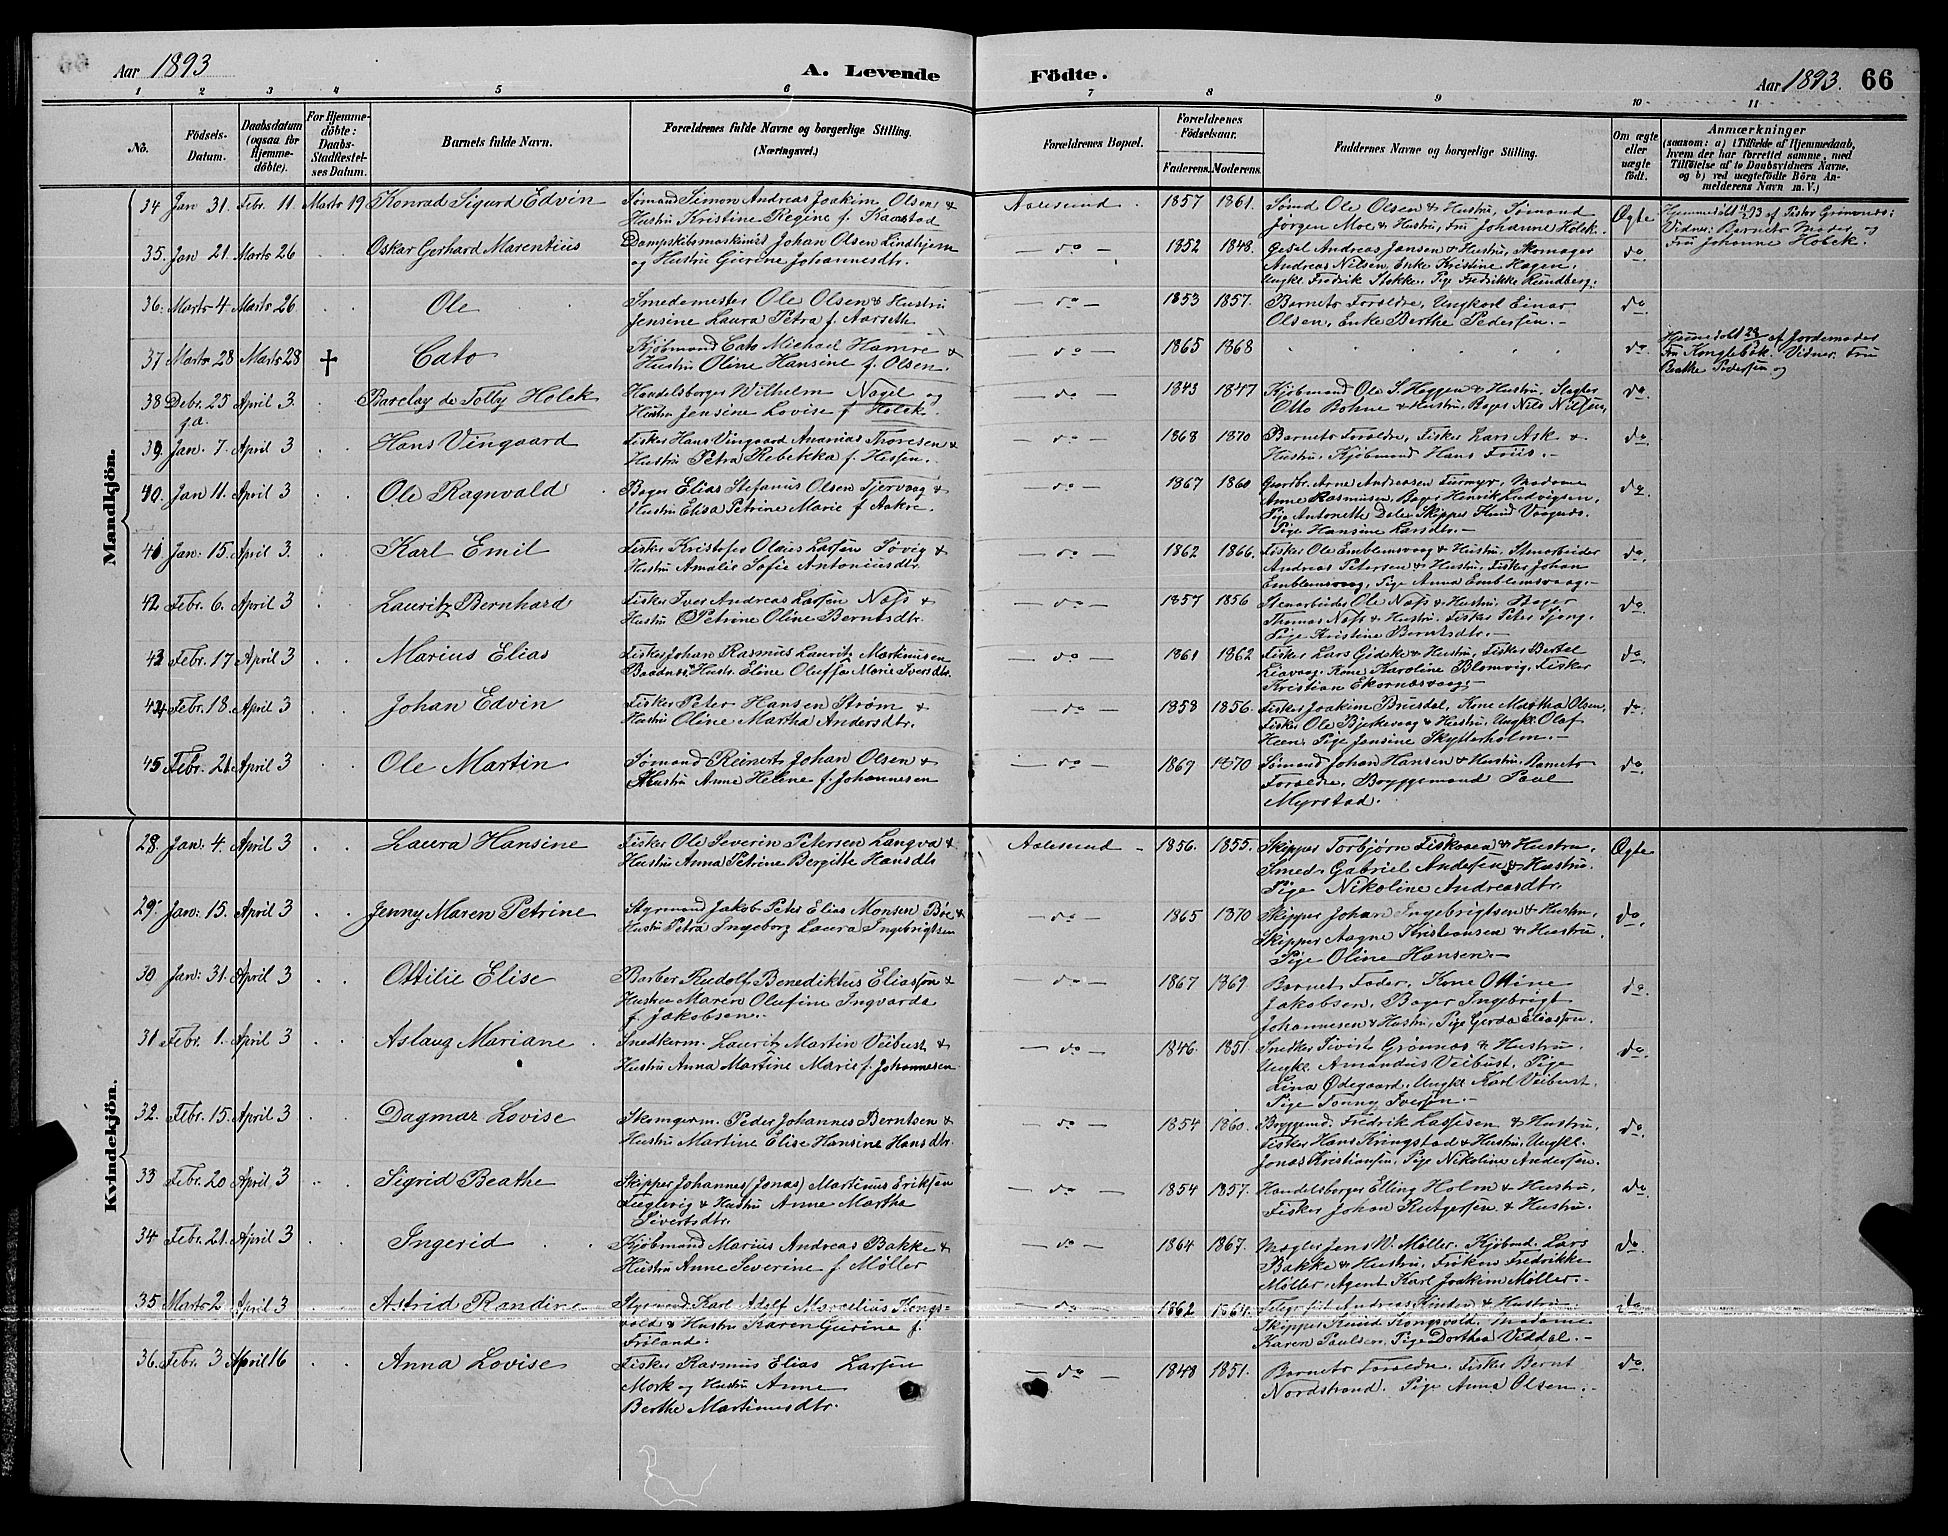 Aar 1893
A. Levende Födte.
Aar 1893. 66
1 2 3 4 5 6 7 8 9 10 11
No.
Födsels-Datum.
Daabsdatum (ogsaa for Hjemme-döbte).
For Hjemme-döbte: Daabs-Stadfæstel-ses Datum.
Barnets fulde Navn.
Forældrenes fulde Navne og borgerlige Stilling. (Næringsvei.)
Forældrenes Bopæl.
Forældrenes Födselsaar.
Faderens. Moderens.
Faddernes Navne og borgerlige Stilling.
Om ægte eller uægte födt.
Anmærkninger
(saasom: a) i Tilfælde af Hjemmedaab, hvem der har forrettet samme, med Tilföielse af to Daabsvidners Navne, og b) ved uægtefödte Börn An-melderens Navn m. V.)
Mandkjön.
34 Jan 31. Febr. 11. Marts 19 Konrad Sigurd Edvin Sømand Simon Andreas Joakim Olsen & Aalesund. 1857 1861. Sømd Ole Olsen & Hustru, Sømand Ægte Hjemmedøbt 11/2 93 af Pastor
Hustru Kristine Regine f. Jørgen Moe & Hustru, Fru Johanne Holck. Vidner: Barnets Moder og
35. Jan 21. Marts 26 Oskar Gerhard Marentius Dampskibsmaskinist Johan Olsen Lindhjem — do — 1852 1848. Gesel Andreas Jansen & Hustru, Skomager do. Fru Johanne Holck.
og Hustru Gjerine Johannesdtr. Andreas Nilsen, Enke Kristine Hagen,
Ungkl Fredrik Stokke, Pige Fredrikke Rundberg.
36. Marts 4. Marts 26 Ole Smedemester Ole Olsen & Hustru — do — 1853 1857. Barnets Forældre, Ungkarl Einar do
Jensine Laura Petra f. Aarseth Olsen, Enke Berthe Pedersen.
37 Marts 28 Marts 28 + Cato Kjøbmand Cato Michael Hamre & — do — 1865 1868 do Hjemmedøbt 28/3 af Jordemoder
Hustru Oline Hansine f. Olsen. Fru Konglebæk. Vidner: Fru
Beathe Pedersen og
38 Debr. 25 April 3. Barclay de Tolly Holck Handelsborger Wilhelm Nagel og — do — 1843 1847 Kjøbmand Ole S. Heggen & Hustru, Slagter do.
g.a. Hustru Jensine Lovise f Holck. Otto Bohne & Hustru, Bager Nils Nilsen,
39. Jan. 7. April 3 Hans Vingaard Fisker Hans Vingaard Ananias Thoresen & — do — 1868 1870 Barnets Forældre, Fisker Lars Ask & do
Hustru Petra Rebekka f. Hessen. Hustru, Kjøbmand Hans Friis.
40. Jan 11. April 3 Ole Ragnvald Bager Elias Stefanus Olsen Tjervaag & — do — 1867 1860 Gaardbr. Arne Andreasen Furmyr, Madame do
Hustru Elisa Petrine Marie f Aakre. Anne Rasmussen, Bager Henrik Ludvigsen,
Pige Antonette Dale, Skipper Knud Vaagnes.
Pige Hansine Larsdtr.
41 Jan. 15. April 3. Karl Emil Fisker Kristofer Olaus Larsen Søvig & — do — 1862 1866. Fisker Ole Emblemsvaag & Hustru, Stenarbeider do
Hustru Amalie Sofie Antoniusdtr. Andreas Petersen & Hustru, Fisker Johan
Emblemsvaag, Pige Anna Emblemsvaag.
42 Febr. 6. April 3 Lauritz Bernhard Fisker Iver Andreas Larsen Næss & — do — 1857 1856 Stenarbeider Ole Næss & Hustru, Bager do
Hustru Petrine Oline Berntsdtr. Thomas Næss & Hustru. Fisker Peter
Pige Kristine Berntsdtr.
43 Febr. 17 April 3 Marius Elias Fisker Johan Rasmus Lauritz Martinusen — do — 1861 1862 Fisker Lars Gjelske & Hustru, Fisker Bertel do
& Hustr. Eline Oluffa Marie Iversdtr. Liavaag. Kone Karoline Blomvig, Fisker
Kristian Ekornæsvaag
44 Febr. 18. April 3 Johan Edvin Fisker Peter Hansen Strøm & — do — 1858 1856. Fisker Joakim Brusdal, Kone Martha Olsen, do.
Hustru Oline Martha Andersdtr. Fisker Ole Bjerkevaag & Hustru, Ungkl. Olaf
Heen, Pige Jensine Skytterholm.
45 Febr. 21. April 3 Ole Martin Sømand Reinert Johan Olsen & — do — 1869 1870 Sømand Johan Hansen & Hustru, Barnets do.
Hustru Anne Helene f. Johannesen Forældre, Bryggemand Paul
Myrstad.
Kvindekjön.
28. Jan. 4. April 3 Laura Hansine Fisker Ole Severin Petersen Langva & Aalesund 1856. 1855. Skipper Torbjørn Fiskaaen & Hustru. Ægte
Hustru Anna Petrine Bergitte Hansdtr Smed Gabriel Andersen & Hustru.
Pige Nikoline Andreasdtr.
29. Jan. 15. April 3 Jenny Maren Petrine Styrmand Jakob Peter Elias Monsen Bøe & — do — 1865 1870 Skipper Johan Ingebrigtsen & Hustru. do.
Hustru Petra Ingeborg Laura Ingebrigtsen Skipper Aagne Kristiansen & Hustru.
Pige Oline Hansen.
30 Jan. 31. April 3 Ottilie Elise Barber Rudolf Benediktus Eliassen & — do — 1867 1869. Barnets Fader, Kone Ottine do.
Hustru Maren Olufine Ingvarda Jakobsen, Bager Ingebrigt
f. Jakobsen. Johannesen & Hustru, Pige Gerda Eliassen.
31 Febr. 1. April 3 Aslaug Mariane Snedkerm. Lauritz Martin Veibust & — do — 1846. 1851. Snedker Sivert Grønnæs & Hustru. do
Hustru Anna Martine Marie f. Johannesen. Ungkl. Amandus Veibust. Pige
Lina Ødegaard. Ungkl. Karl Veibust.
Pige Tonny Iversen.
32. Febr. 15. April 3 Dagmar Lovise Skomgerm. Peder Johannes Berntsen & — do — 1854 1860. Bryggemd. Fredrik Lassesen & Hustru, do.
Hustru Martine Elise Hansine Hansdtr. Fisker Hans Kringstad & Hustru, Ungkl.
Jonas Kristiansen, Pige Nikoline Andersen.
33 Febr. 20 April 3 Sigrid Beathe Skipper Johannes (Jonas) Martinus Eriksen — do — 1854 1857. Handelsborger Elling Holm & Hustru. do
Fuglevig & Hustru Anne Martha Fisker Johan Rutgersen & Hustru.
Sivertsdtr.
34 Febr. 21. April 3 Ingerid Kjøbmand Marius Andreas Bakke & — do — 1864 1867. Mægler Jens W. Møller. Kjøbmd. Lars do.
Hustru Anne Severine f Møller Bakke & Hustru, Frøken Fredrikke
Møller, Agent Karl Joakim Møller.
35 Marts 2 April 3 Astrid Randine Styrmand Karl Adolf Marcelius Kongs- — do — 1862 1864. Telegrafist Andreas & Hustru do
vold & Hustru Karen Gurine f. Skipper Knud Kongsvold, Madame
Frilande. Karen Paulsen, Pige Dorthea Viddal.
36. Febr. 3 April 16 Anna Lovise Fisker Rasmus Elias Larsen — do — 1848 1851. Barnets Forældre. Fisker Bernt do
Mork og Hustru Anne Nordstrand. Pige Anna Olsen.
Berthe Martinusdtr.